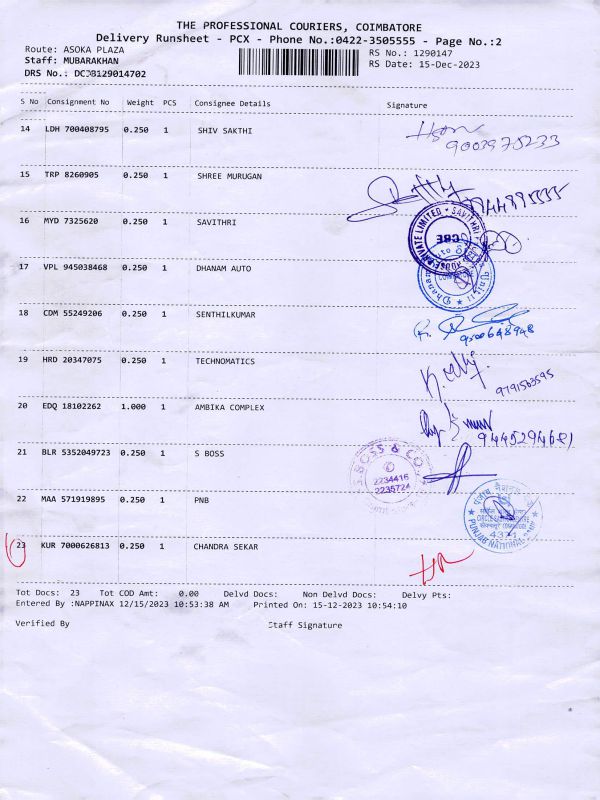 THE PROFESSIONAL COURIERS, COIMBATORE
Delivery Runsheet - PCX - Phone No.:0422-3505555 - Page No.:2
Route: ASOKA PLAZA RS No.: 1290147
Staff: MUBARAKHAN RS Date: 15-Dec-2023
DRS No.: DCDB129014702
S No Consignment No Weight PCS Consignee Details Signature
14 LDH 700408795 0.250 1 SHIV SAKTHI
15 TRP 8260905 0.250 1 SHREE MURUGAN
16 MYD 7325620 0.250 1 SAVITHRI
PRIVATE LIMITED * SAVITHRI
CBE
17 VPL 945038468 0.250 1 DHANAM AUTO
Dhanam
18 CDM 55249206 0.250 1 SENTHILKUMAR
9500648948
19 HRD 20347075 0.250 1 TECHNOMATICS
9791563595
20 EDQ 18102262 1.000 1 AMBIKA COMPLEX
9445294681
21 BLR 5352049723 0.250 1 S BOSS
BOSS & CO
2234416
2235724
22 MAA 571919895 0.250 1 PNB
4371
PUNJAB NATIONAL BANK
23 KUR 7000626813 0.250 1 CHANDRA SEKAR
Tot Docs: 23 Tot COD Amt: 0.00 Delvd Docs: Non Delvd Docs: Delvy Pts:
Entered By :NAPPINAX 12/15/2023 10:53:38 AM Printed On: 15-12-2023 10:54:10
Verified By Staff Signature